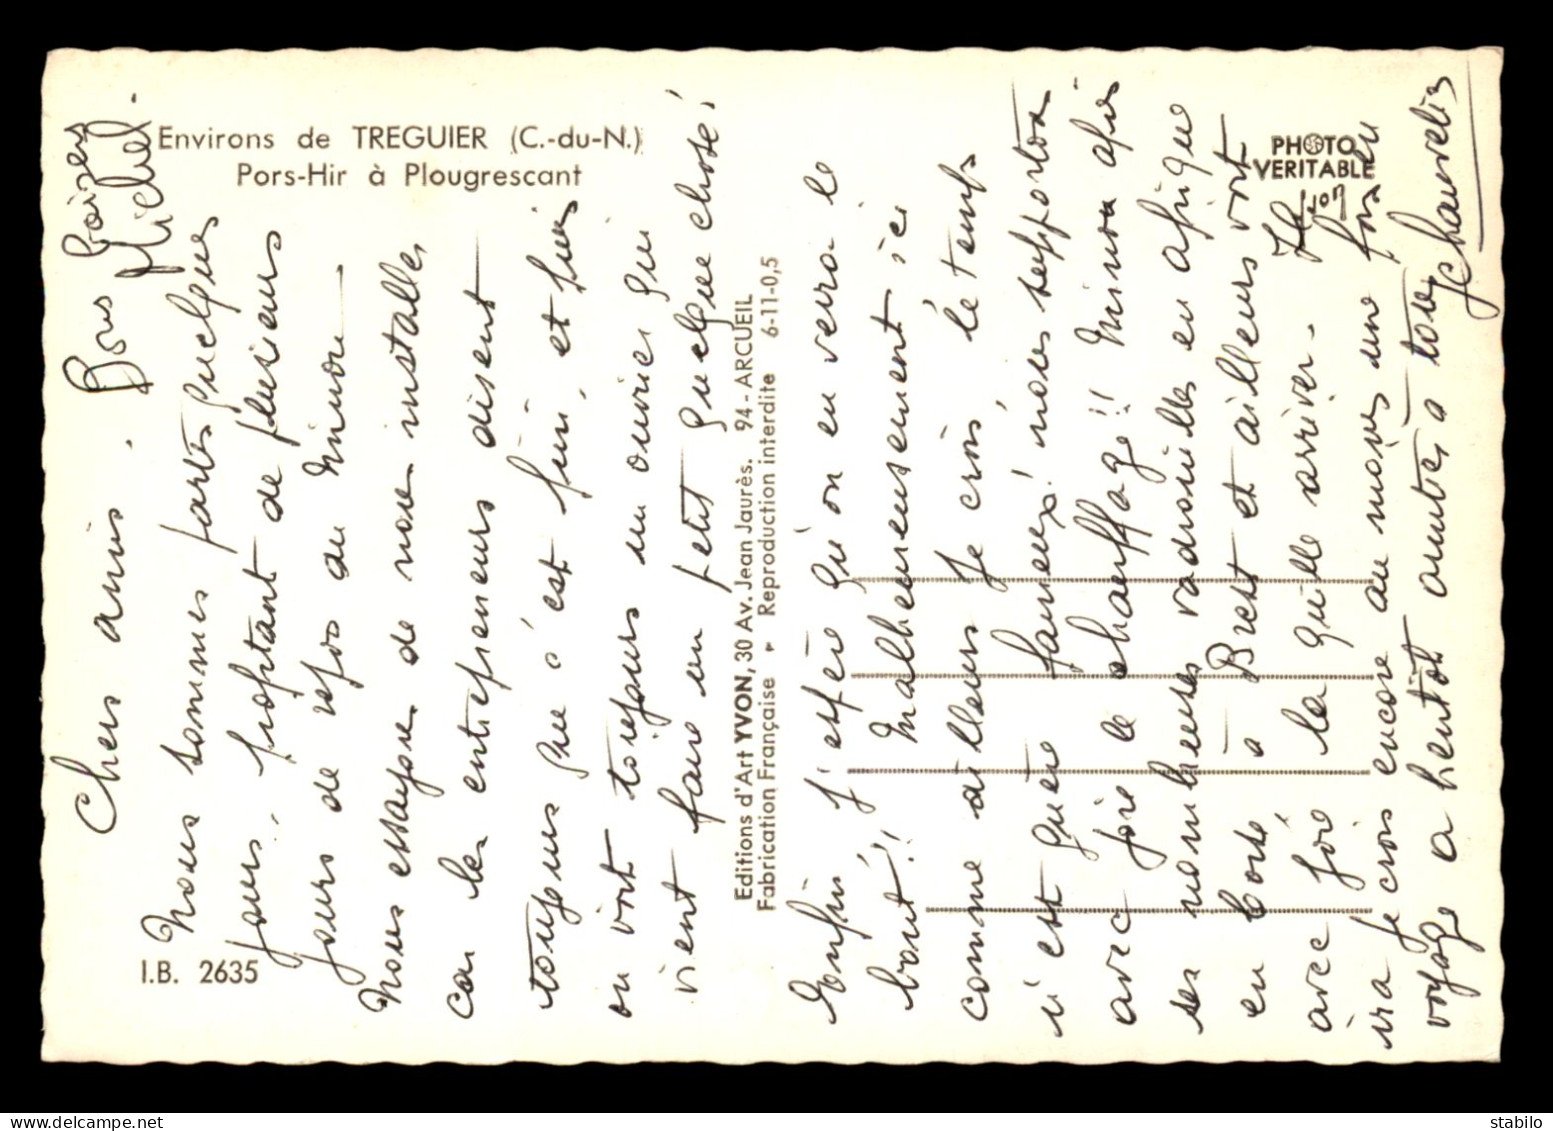 Environs de TREGUIER (C.-du-N.)
Pors-Hir à Plougrescant
I.B. 2635
PHOTO
VERITABLE
Editions d'Art YVON, 30 Av. Jean Jaurès. 94 - ARCUEIL
Fabrication Française Reproduction interdite 6-11-0,5
Chers amis.
Nous sommes partis quelques
jours, profitant de plusieurs
jours de repos du Minou
Nous essayons de nous installer
car les entrepreneurs disent
toujours que c'est fini, et puis
on voit toujours un ouvrier qui
vient faire un petit quelque chose!
Enfin, j'espère qu'on en verra le
bout!! Malheureusement ici
comme ailleurs je crois le temps
n'est guère fameux! nous supportons
avec joie le chauffage!! Minou après
ses nombreuses vadrouilles en afrique
en Corse à Brest et ailleurs voit
avec joie la quille arriver. Il
ira je crois encore au moins une fois en
voyage à bientôt amitiés à tous
Bons baisers
Michel.